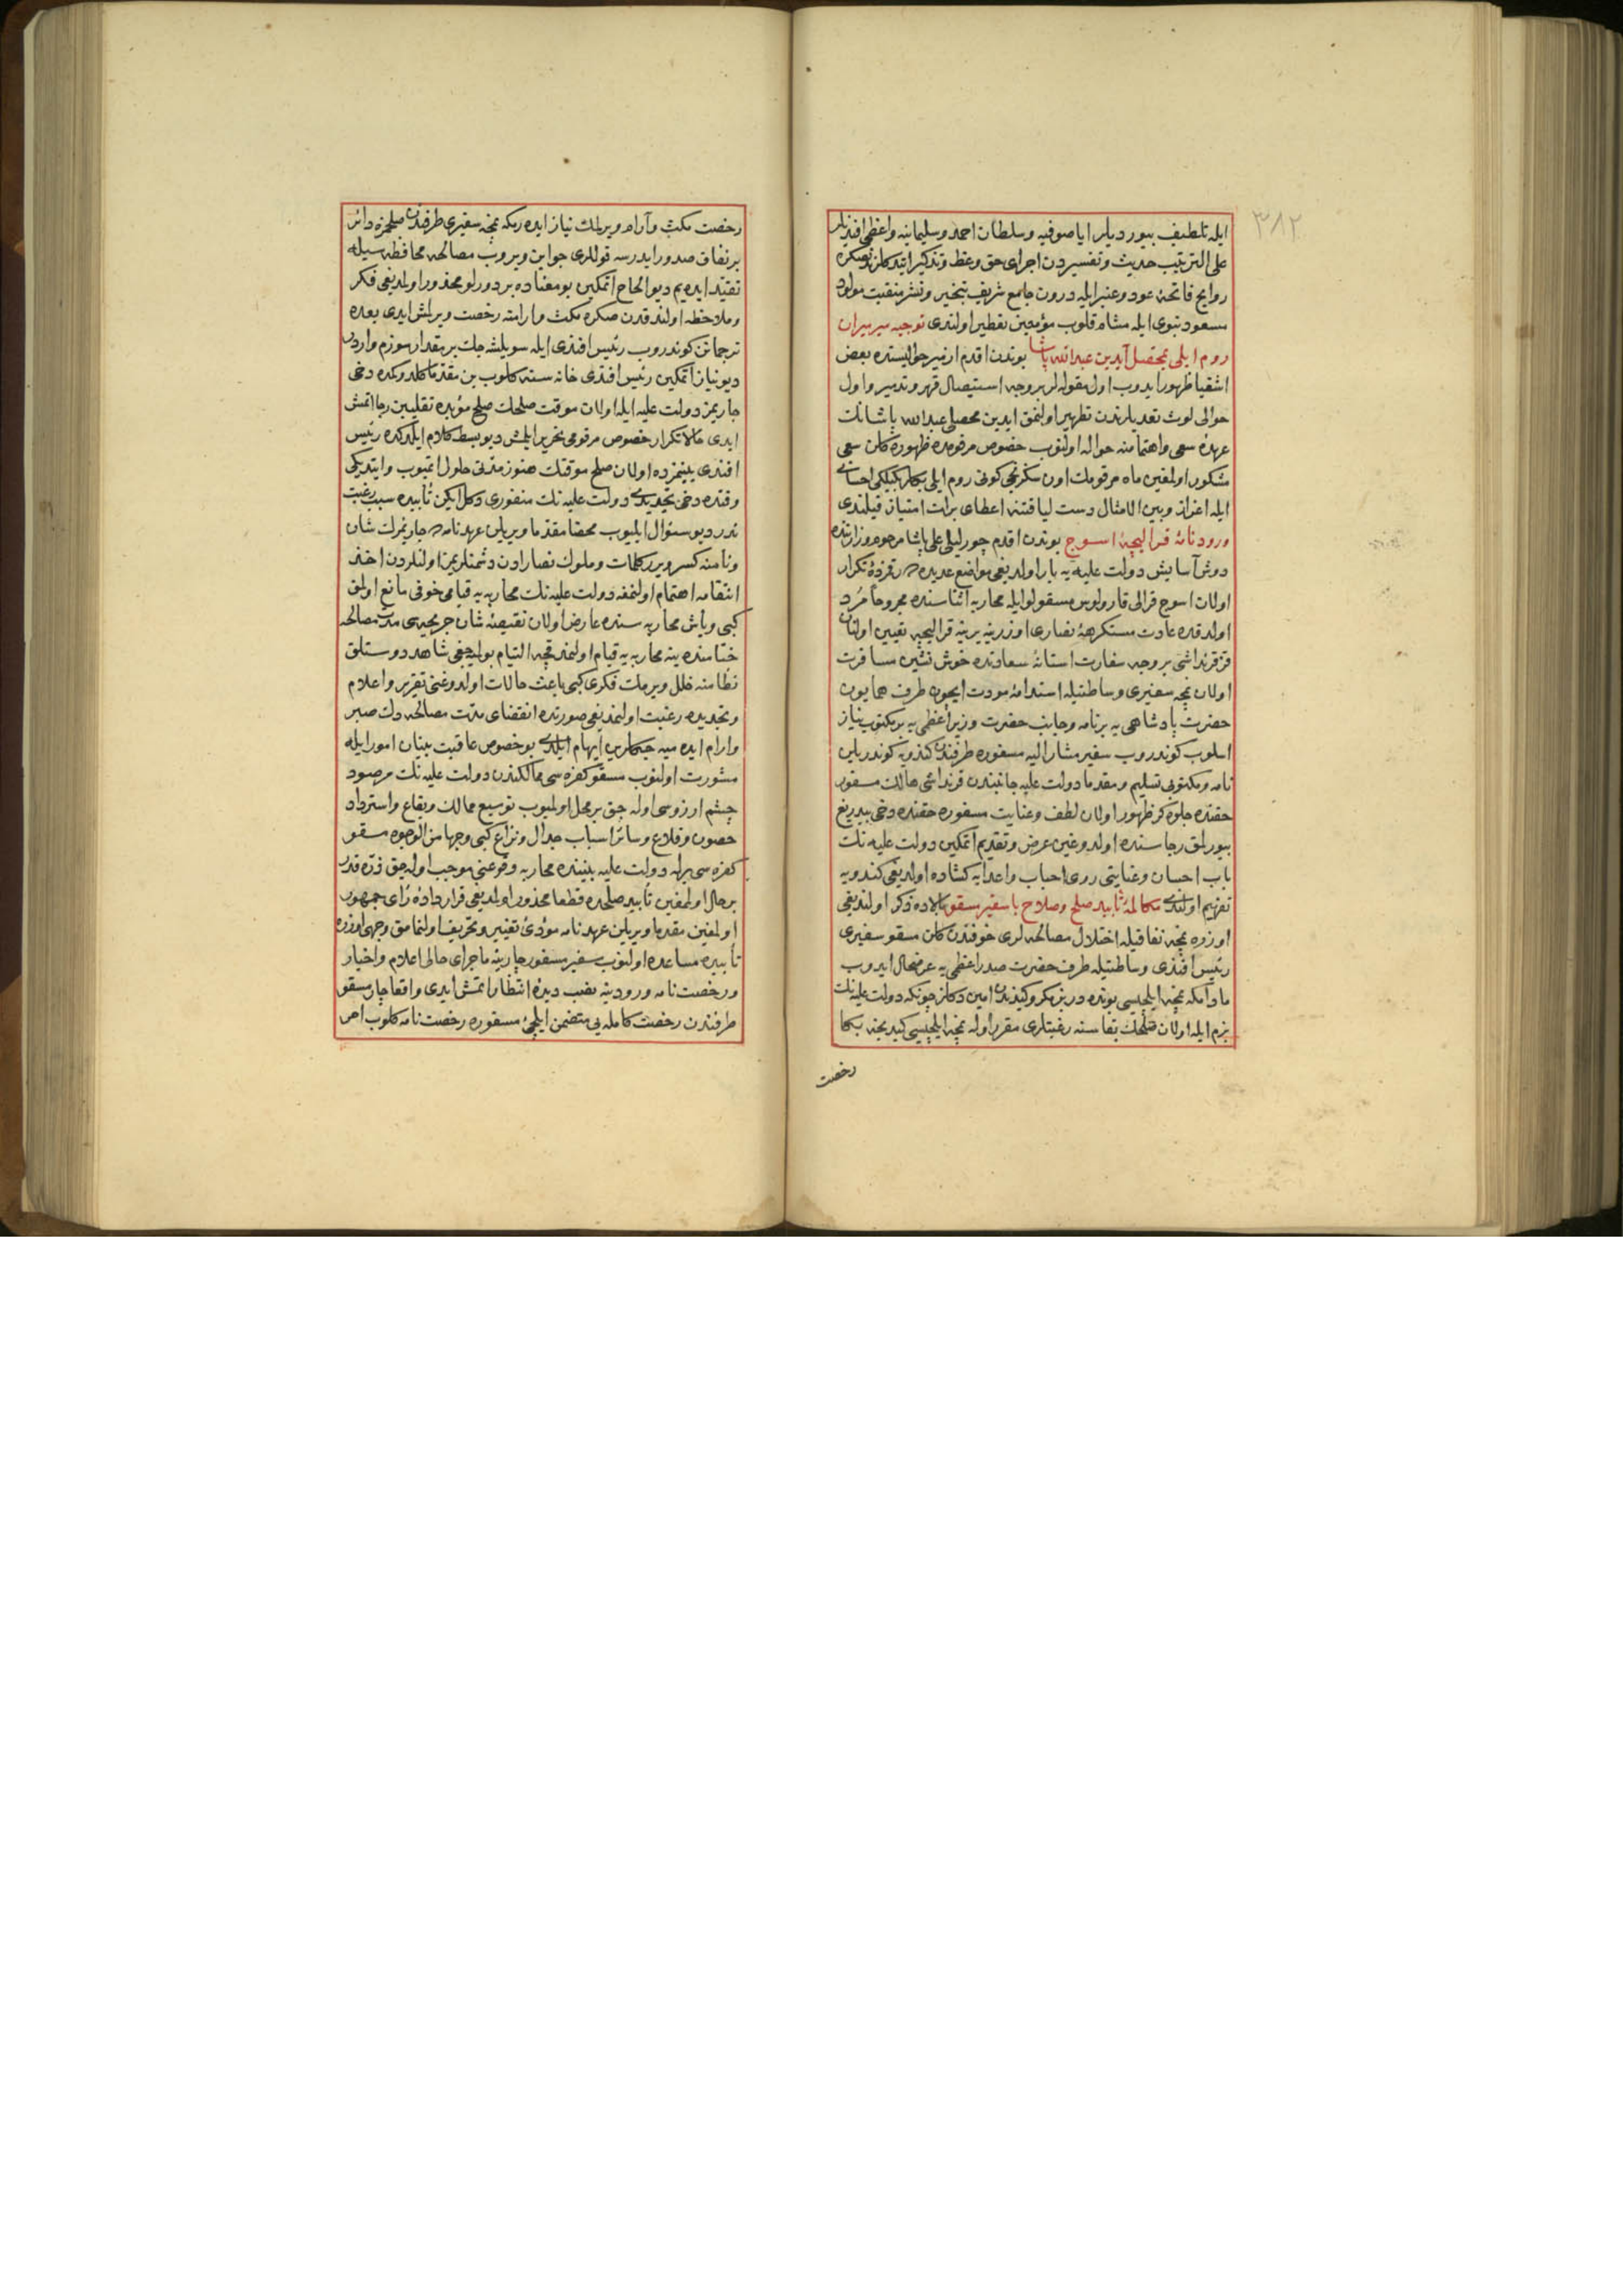 ٣٨٢
ایله تلطیف بیوردیلر ایا صوفیه و سلطان احمد و سلیمانیه واعظی افندیلر
علی الترتیب حدیث و تفسیردن اجرای حق وعظ و تذکیر ایتدکلرندنصکره
روایح فاتحهٔ عود و عنبر ایله درون جامع شریف تبخیر و نشر منقبت مولود
مسعود نبوی ایله مشام قلوب مؤمنین تعطیر اولندی توجیه میرمیران
روم ایلی بمحصل آیدین عبدالله پاشا بوندن اقدم ازمیر حوالیسنده بعض
اشقیا ظهور ایدوب اول مقوله لر بروجه استیصال قهر و تدمیر و اول
حوالی لوث تعدیلرندن تطهیر اولنمق ایدین محصلی عبدالله پاشانك
عهدهٔ سعی و اهتمامنه حواله اولنوب خصوص مرقومده ظهوره کلن سعی
مشکور اولمغین ماه مرقومك اون سکزنجی کونی روم ایلی بکلربکیلکی احسانی
ایله اعزاز و بین الامثال دست لیاقتنه اعطای برات امتیاز قیلندی
ورود نامهٔ قرالیچهٔ اسوج بوندن اقدم چورلیلی علی پاشا مرحوم وزارتنده
دوش آسایش دولت علیه یه بار اولدیغی مواضع عدیده ده رقمزدهٔ تکرار
اولان اسوج قرالی قارولوس مسقولو ایله محاربه اثناسنده مجروحاً مُرد
اولدقده عادت مستکرههٔ نصاری اوزرینه یرینه قرالیچه تعیین اولنان
قزقرنداشی بروجه سفارت استانهٔ سعادتده خوش نشین مسافرت
اولان نمچه سفیری وساطتیله استدامهٔ مودت ایچون طرف همایون
حضرت پادشاهی یه برنامه و جانب حضرت وزیر اعظمی یه بر مکتوب نیاز
اسلوب کوندروب سفیر مشار الیه مسفوره طرفندن کندویه کوندریلن
نامه و مکتوبی تسلیم و مقدما دولت علیه جانبندن قرنداشی هالك مسفور
حقنده جلوه کر ظهور اولان لطف و عنایت مسفوره حقنده دخی بیدریغ
بیورلمق رجاسنده اولدوغین عرض و تقدیم اتمکین دولت علیه نك
باب احسان و عنایتی روی احباب و اعدایه کشاده اولدیغی کندویه
تفهیم اولندی مکالمهٔ تأبید صلح و صلاح با سفیر مسقو بالاده ذکر اولندیغی
اوزره نمچه نفاقیله اختلال مصالحه لری خوفندن کلن مسقو سفیری
رئیس افندی وساطتیله طرف حضرت صدر اعظمی یه عرضحال ایدوب
مادامکه نمچه ایلچیسی بونده در بز مکر و کیدندن امین دکلز چونکه دولت علیه نك
بزم ایله اولان صلحك بقاسنه رغبتلری مقرر اوله نمچه ایلچیسی کیدنجه بکا
رخصت
رخصت مکث و آرام ویرلمك نیاز ایده رمکه نمچه سفیری طرفندن صلحمزه دائر
بر نفاق صدور ایدرسه قوللری جوابن ویروب مصالحه محافظه سیله
تقید ایدیم دیو الحاح اتمکین بو معناده بر درلو محذور اولدیغی فکر
و ملاحظه اولندقدن صکره مکث و ارامنه رخصت ویرلمش ایدی بعده
ترجمانن کوندروب رئیس افندی ایله سویلشه جك بر مقدار سوزم واردر
دیو نیاز اتمکین رئیس افندی خانه سنه کلوب بن مقدما کلدوکمده دخی
چاریمز دولت علیه ایله اولان موقت صلحك صلح مؤبده تقلیبین رجا اتمش
ایدی حالا تکرار خصوص مرقومی تحریر ایلمش دیو بسط کلام ایلدکده رئیس
افندی بینمزده اولان صلح موقتك هنوز مدتی حلول اتمیوب و ایتدیکی
وقتده دخی تجدیدی دولت علیه نك منفوری دکل ایکن تأبیده سبب رغبت
ندر دیو سئوال ایلیوب محصا مقدما ویریلن عهدنامه ده چاریمزك شان
و نامنه کسر ویرر کلمات و ملوك نصارادن دشمنلریمز اولنلردن اخذ
انتقامه اهتمام اولنمغه دولت علیه نك محاربه یه قیامی خوفی مانع اولمق
کبی و یاش محاربه سنده عارض اولان نقیصهٔ شان جریحه سی مدت مصالحه
ختامنده ینه محاربه یه قیام اولنمدقجه التیام بولمیجغی شاهد دوستلق
نظامنه خلل ویرمك فکری کبی باعث حالات اولدوغنی تقریر و اعلام
و تجدیده رغبت اولنمدیغی صورتده انقضای مدت مصالحه دك صبر
و ارام ایده میه جکلرین ایهام ایلدی بو خصوص عاقبت بینان امور ایله
مشورت اولنوب مسقو کفره سی ممالکندن دولت علیه نك مرصود
چشم ارزوسی اوله جق بر محل اولمیوب توسیع ممالك و بقاع و استرداد
حصون و قلاع و سائر اسباب جدال و نزاع کبی وجها من الوجوه مسقو
کفره سی برله دولت علیه بیننده محاربه وقوعنی موجب اوله جق ذره قدر
برحال اولمغین تأبید صلحده قطعا محذور اولمدیغی قرار دادهٔ رای جمهور
اولمغین مقدما ویریلن عهدنامه مؤدئ تغییر و تحریف اولنمامق وجهی اوزره
تأبیده مساعده اولنوب سفیر مسفور چارینه ماجرای حالی اعلام و اخبار
و رخصت نامه ورودینه نصب دیدهٔ انتظار اتمش ایدی واقعا چار مسقو
طرفندن رخصت کامله یی متضمن ایلچئ مسفوره رخصت نامه کلوب امر